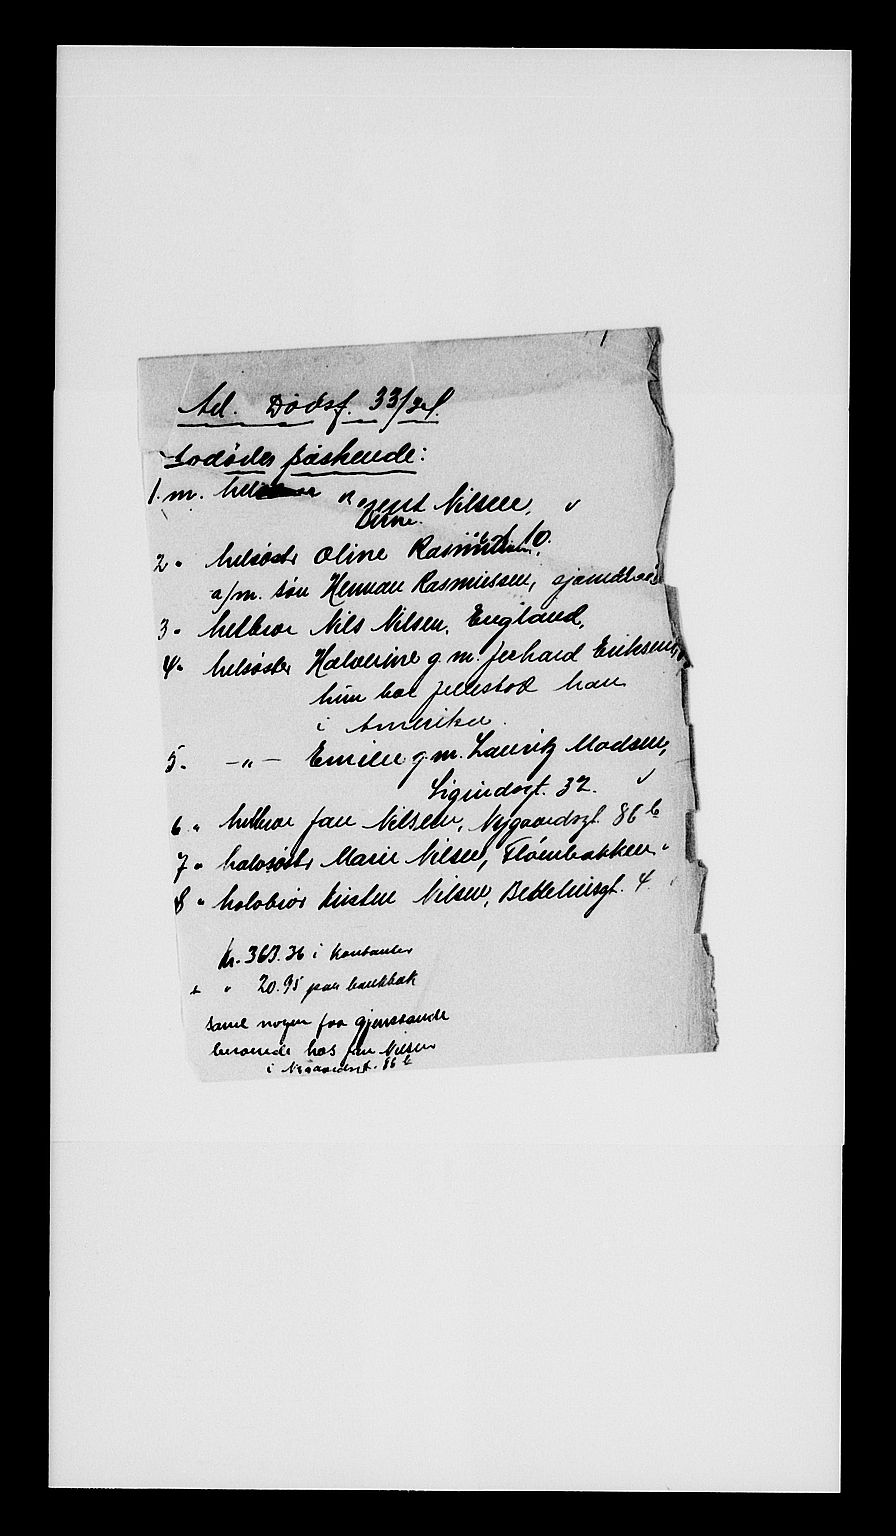 Ad. Dødsf. 33/21.
Avdødes søskende:
1. m. Nilsen,
2 " helsøster Oline Rasmussen,
a/m. søn Herman Rasmussen,
3 " helbror Nils Nilsen, England,
4 " helsøster g. m. Gerhard Eriksen,
hun har han
i Amerika.
5 " -"- Emilie g. m. Lauritz Madsen,
32.
6 " helbror Jan Nilsen, Nygaardsgt. 86 b
7 " halvsøster Marie Nilsen, Fløienbakken
8 " halvbror Kristen Nilsen, Betlehemsgt. 4
Kr. 363.36 i kontanter
+ " 20.95 paa bankbok
samt nogen faa gjenstande
beroende hos Jan Nilsen
i Nygaardsgt. 86 b